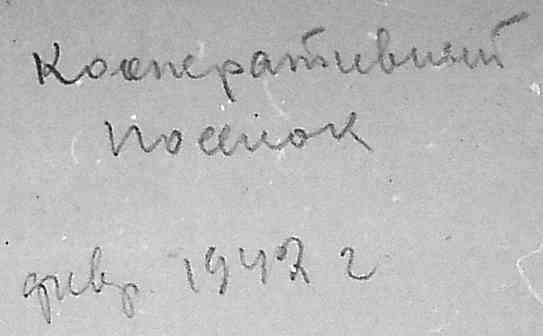 Кооперативный
поселок
февр. 1942 г